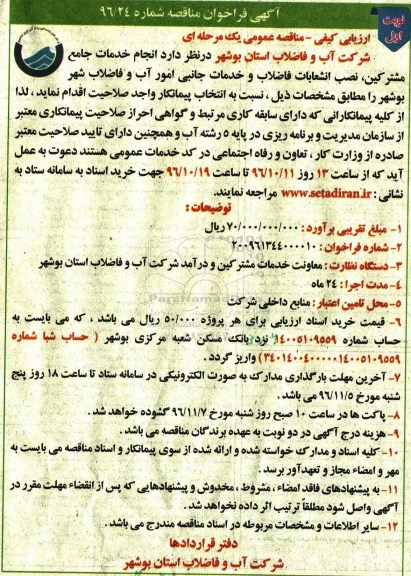 آگهی فراخوان مناقصه شماره ۹۶/۲۴
نوبت اول
ارزیابی کیفی - مناقصه عمومی یک مرحله ای
شرکت آب و فاضلاب استان بوشهر درنظر دارد انجام خدمات جامع
مشترکین، نصب انشعابات فاضلاب و خدمات جانبی امور آب و فاضلاب شهر
بوشهر را مطابق مشخصات ذیل ، نسبت به انتخاب پیمانکار واجد صلاحیت اقدام نماید ، لذا
از کلیه پیمانکارانی که دارای سابقه کاری مرتبط و گواهی احراز صلاحیت پیمانکاری معتبر
از سازمان مدیریت و برنامه ریزی در پایه ۵ رشته آب و همچنین دارای تایید صلاحیت معتبر
صادره از وزارت کار ، تعاون و رفاه اجتماعی در کد خدمات عمومی هستند دعوت به عمل
آید که از ساعت ۱۳ روز ۹۶/۱۰/۱۱ تا ساعت ۹۶/۱۰/۱۹ جهت خرید اسناد به سامانه ستاد به
نشانی : www.setadiran.ir مراجعه نمایند.
توضیحات :
۱- مبلغ تقریبی برآورد : ۷۰/۰۰۰/۰۰۰/۰۰۰ ریال
۲- شماره فراخوان : ۲۰۰۹۶۱۳۴۴۰۰۰۰۱۰
۳- دستگاه نظارت : معاونت خدمات مشترکین و درآمد شرکت آب و فاضلاب استان بوشهر
۴- مدت اجرا : ۲۴ ماه
۵- محل تامین اعتبار : منابع داخلی شرکت
۶- قیمت خرید اسناد ارزیابی برای هر پروژه ۵۰/۰۰۰ ریال می باشد ، که می بایست به
حساب شماره ۱۴۰۰۵۱۰۹۵۵۹ نزد بانک مسکن شعبه مرکزی بوشهر ( حساب شبا شماره
۳۴۰۱۴۰۰۴۰۰۰۰۰۱۴۰۰۵۱۰۹۵۵۹) واریز گردد.
۷- آخرین مهلت بارگذاری مدارک به صورت الکترونیکی در سامانه ستاد تا ساعت ۱۸ روز پنج
شنبه مورخ ۹۶/۱۱/۵ می باشد .
۸- پاکت ها در ساعت ۱۰ صبح روز شنبه مورخ ۹۶/۱۱/۷ گشوده خواهد شد .
۹- هزینه درج آگهی در دو نوبت به عهده برندگان مناقصه می باشد .
۱۰- کلیه اسناد و مدارک خواسته شده و ارائه شده از سوی پیمانکار و اسناد مناقصه می بایست به
مهر و امضاء مجاز و تعهدآور برسد .
۱۱- به پیشنهادهای فاقد امضاء ، مشروط ، مخدوش و پیشنهادهایی که پس از انقضاء مهلت مقرر در
آگهی واصل شود مطلقاً ترتیب اثر داده نخواهد شد .
۱۲- سایر اطلاعات و مشخصات مربوطه در اسناد مناقصه مندرج می باشد .
دفتر قراردادها
شرکت آب و فاضلاب استان بوشهر